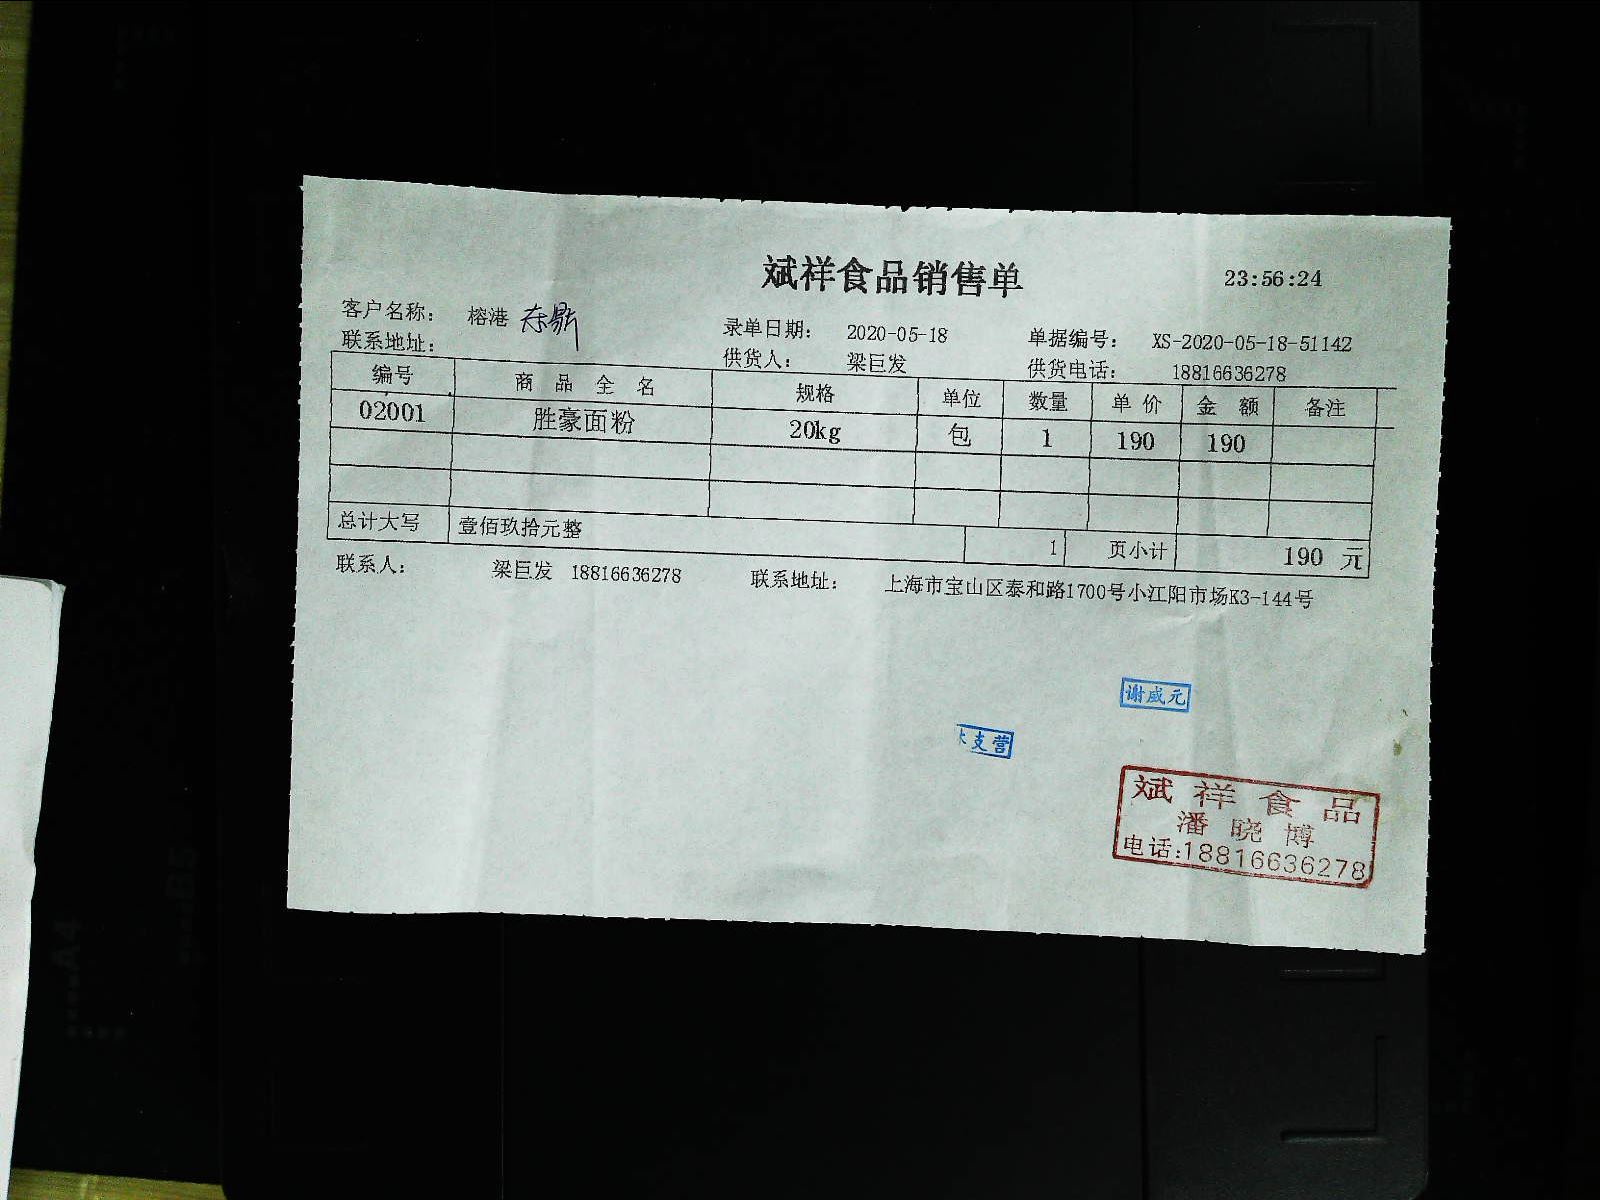 斌祥食品销售单 23:56:24
客户名称： 榕港 录单日期： 2020-05-18 单据编号： XS-2020-05-18-51142
联系地址： 供货人： 梁巨发 供货电话： 18816636278
编号 商品全名 规格 单位 数量 单价 金额 备注
02001 胜豪面粉 20kg 包 1 190 190
总计大写 壹佰玖拾元整 1 页小计 190 元
联系人： 梁巨发 18816636278 联系地址： 上海市宝山区泰和路1700号小江阳市场K3-144号
谢威元
支营
斌祥食品
潘晓博
电话:18816636278
A4
B5